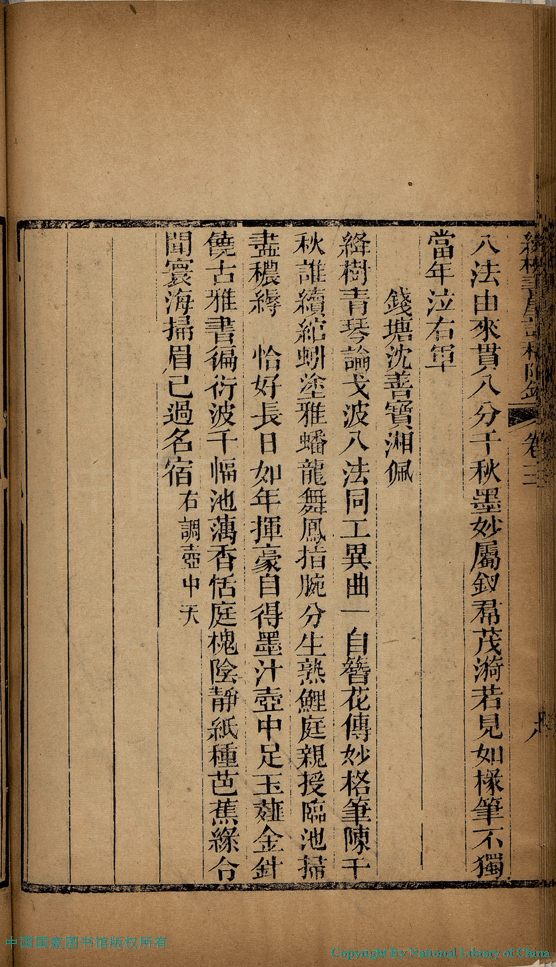 八法由來貫八分千秋墨妙屬釵帬茂漪若見如椽筆不獨
當年泣右軍
錢塘沈善寶湘佩
絳樹青琴論戈波八法同工異曲一自簪花傳妙格筆陳千
秋誰續綰蚓塗雅蟠龍舞鳳指腕分生熟鯉庭親授臨池掃
盡穠縟　恰好長日如年揮豪自得墨汁壺中足玉薤金針
饒古雅書徧衍波千幅池藕香恬庭槐陰靜紙種芭蕉綠合
聞寰海掃眉已過名宿右調壺中天
卷三
八
中国国家图书馆版权所有
Copyright By National Library of China